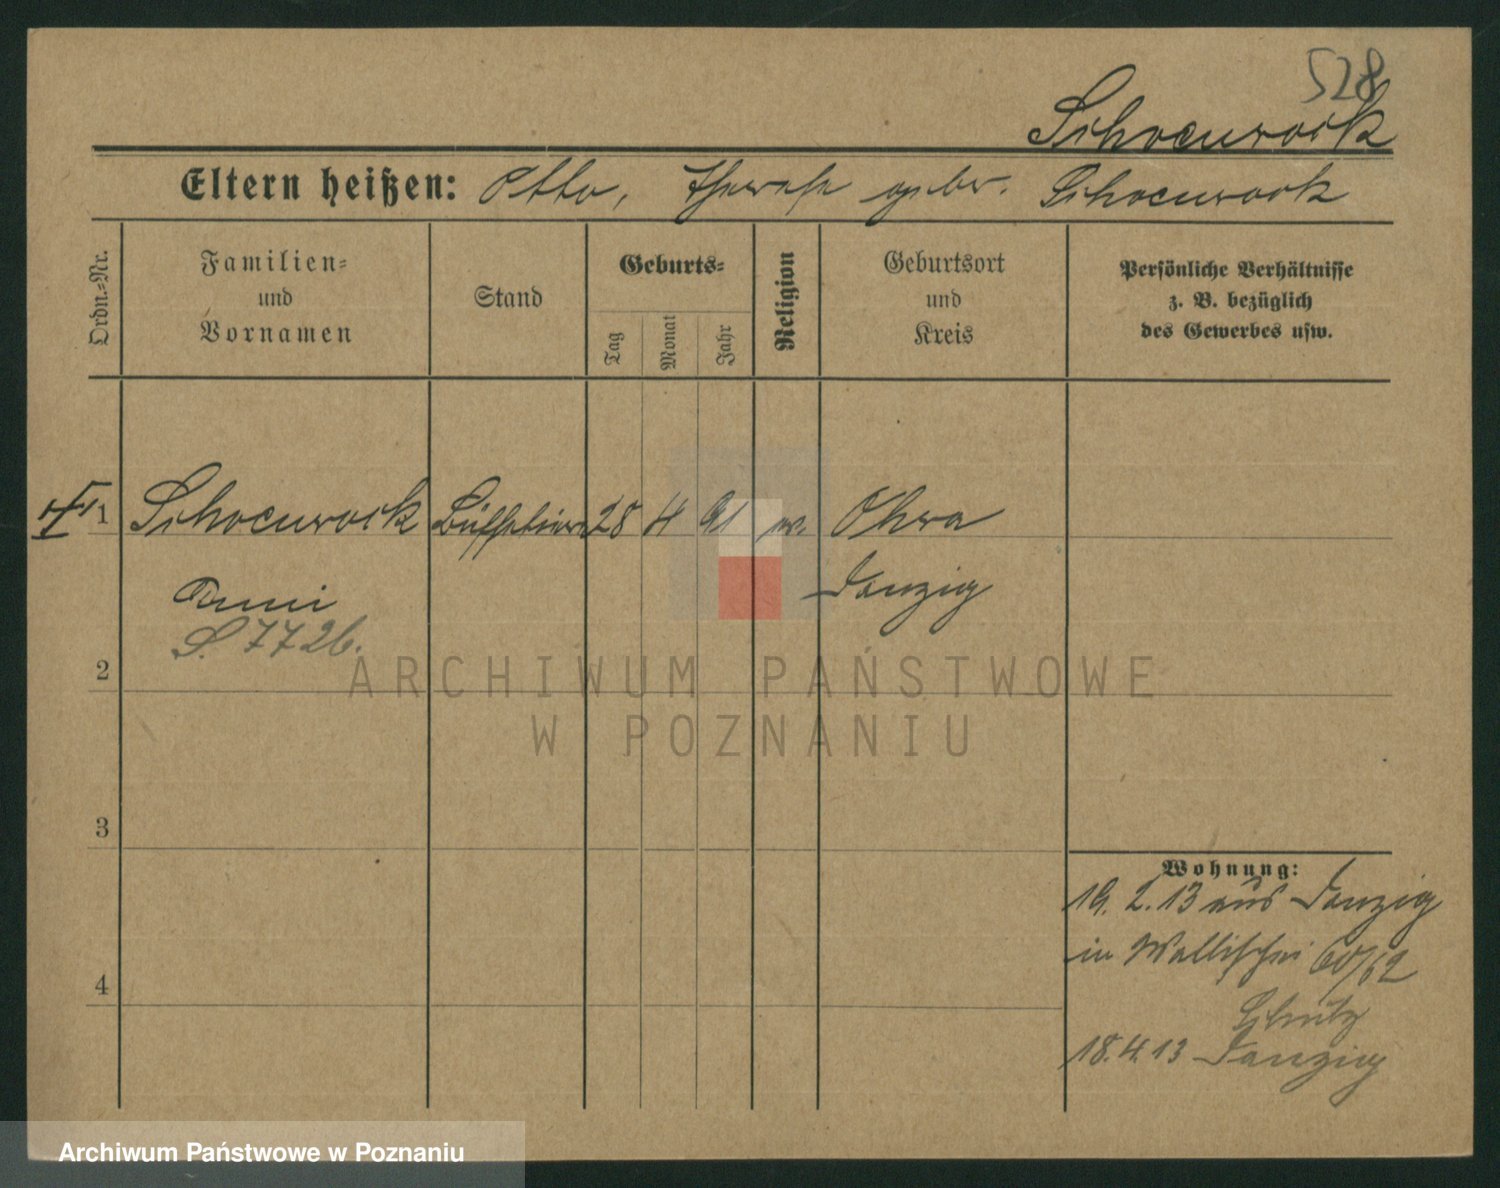 528
Schoenrock
Eltern heißen: Otto, Therese gebr. Schoenrock
Ordn.=Nr.
Familien=
und
Vornamen
Stand
Geburts=
Tag
Monat
Jahr
Religion
Geburtsort
und
Kreis
Persönliche Verhältnisse
z. B. bezüglich
des Gewerbes usw.
1 Schoenrock 28 4 91 Ohra
Danzig
S. 7726.
2
3
4
Wohnung:
19. 2. 13 aus Danzig
in Wallischei 60/62
18. 4. 13 Danzig
ARCHIWUM PAŃSTWOWE
W POZNANIU
Archiwum Państwowe w Poznaniu